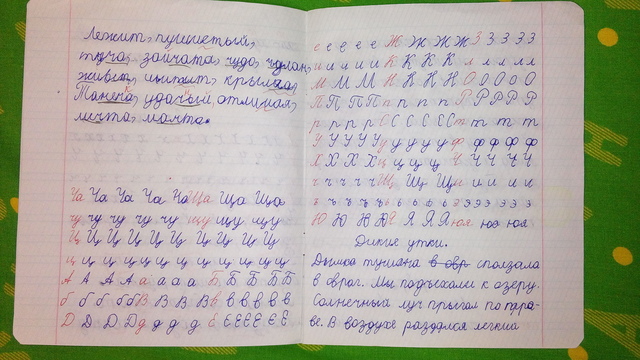 Лежит, пушистый,
туча, зайчата, чудо, чулан,
живёт, шипит, крылья,
Танечка, удачный, отличная,
мечта, мачта.
Ча Ча Ча Ча Ча Ща Ща Ща
чу чу чу чу чу щу щу щу
Ц Ц Ц Ц Ц Ц Ц Ц Ц
ц ц ц ц ц ц ц ц ц ц
А А А А а а а а Б Б Б Б Б
б б б б б В В В В в в в в в
Д Д Д Д д д д д Е Е Е Е Е
е е е е е Ж Ж Ж Ж З З З З З
и и и и и К К К К л л л л л
М М М М Н Н Н Н О О О О О
П П П П п п п п Р Р Р Р Р
р р р р С С С С С т т т т
У У У У у у у у ф ф ф ф ф
Х Х Х Х ц ц ц ц Ч Ч Ч Ч
ч ч ч ч ч Щ Щ Щ и и и
ъ ъ ъ ъ ь ь ь ь э э э э э
Ю Ю Ю Ю Я Я Я Я юя юя юя
Дикие утки.
Дымка тумана в овр сползала
в овраг. Мы подъехали к озеру.
Солнечный луч прыгал по тра-
ве. В воздухе раздался лёгкий